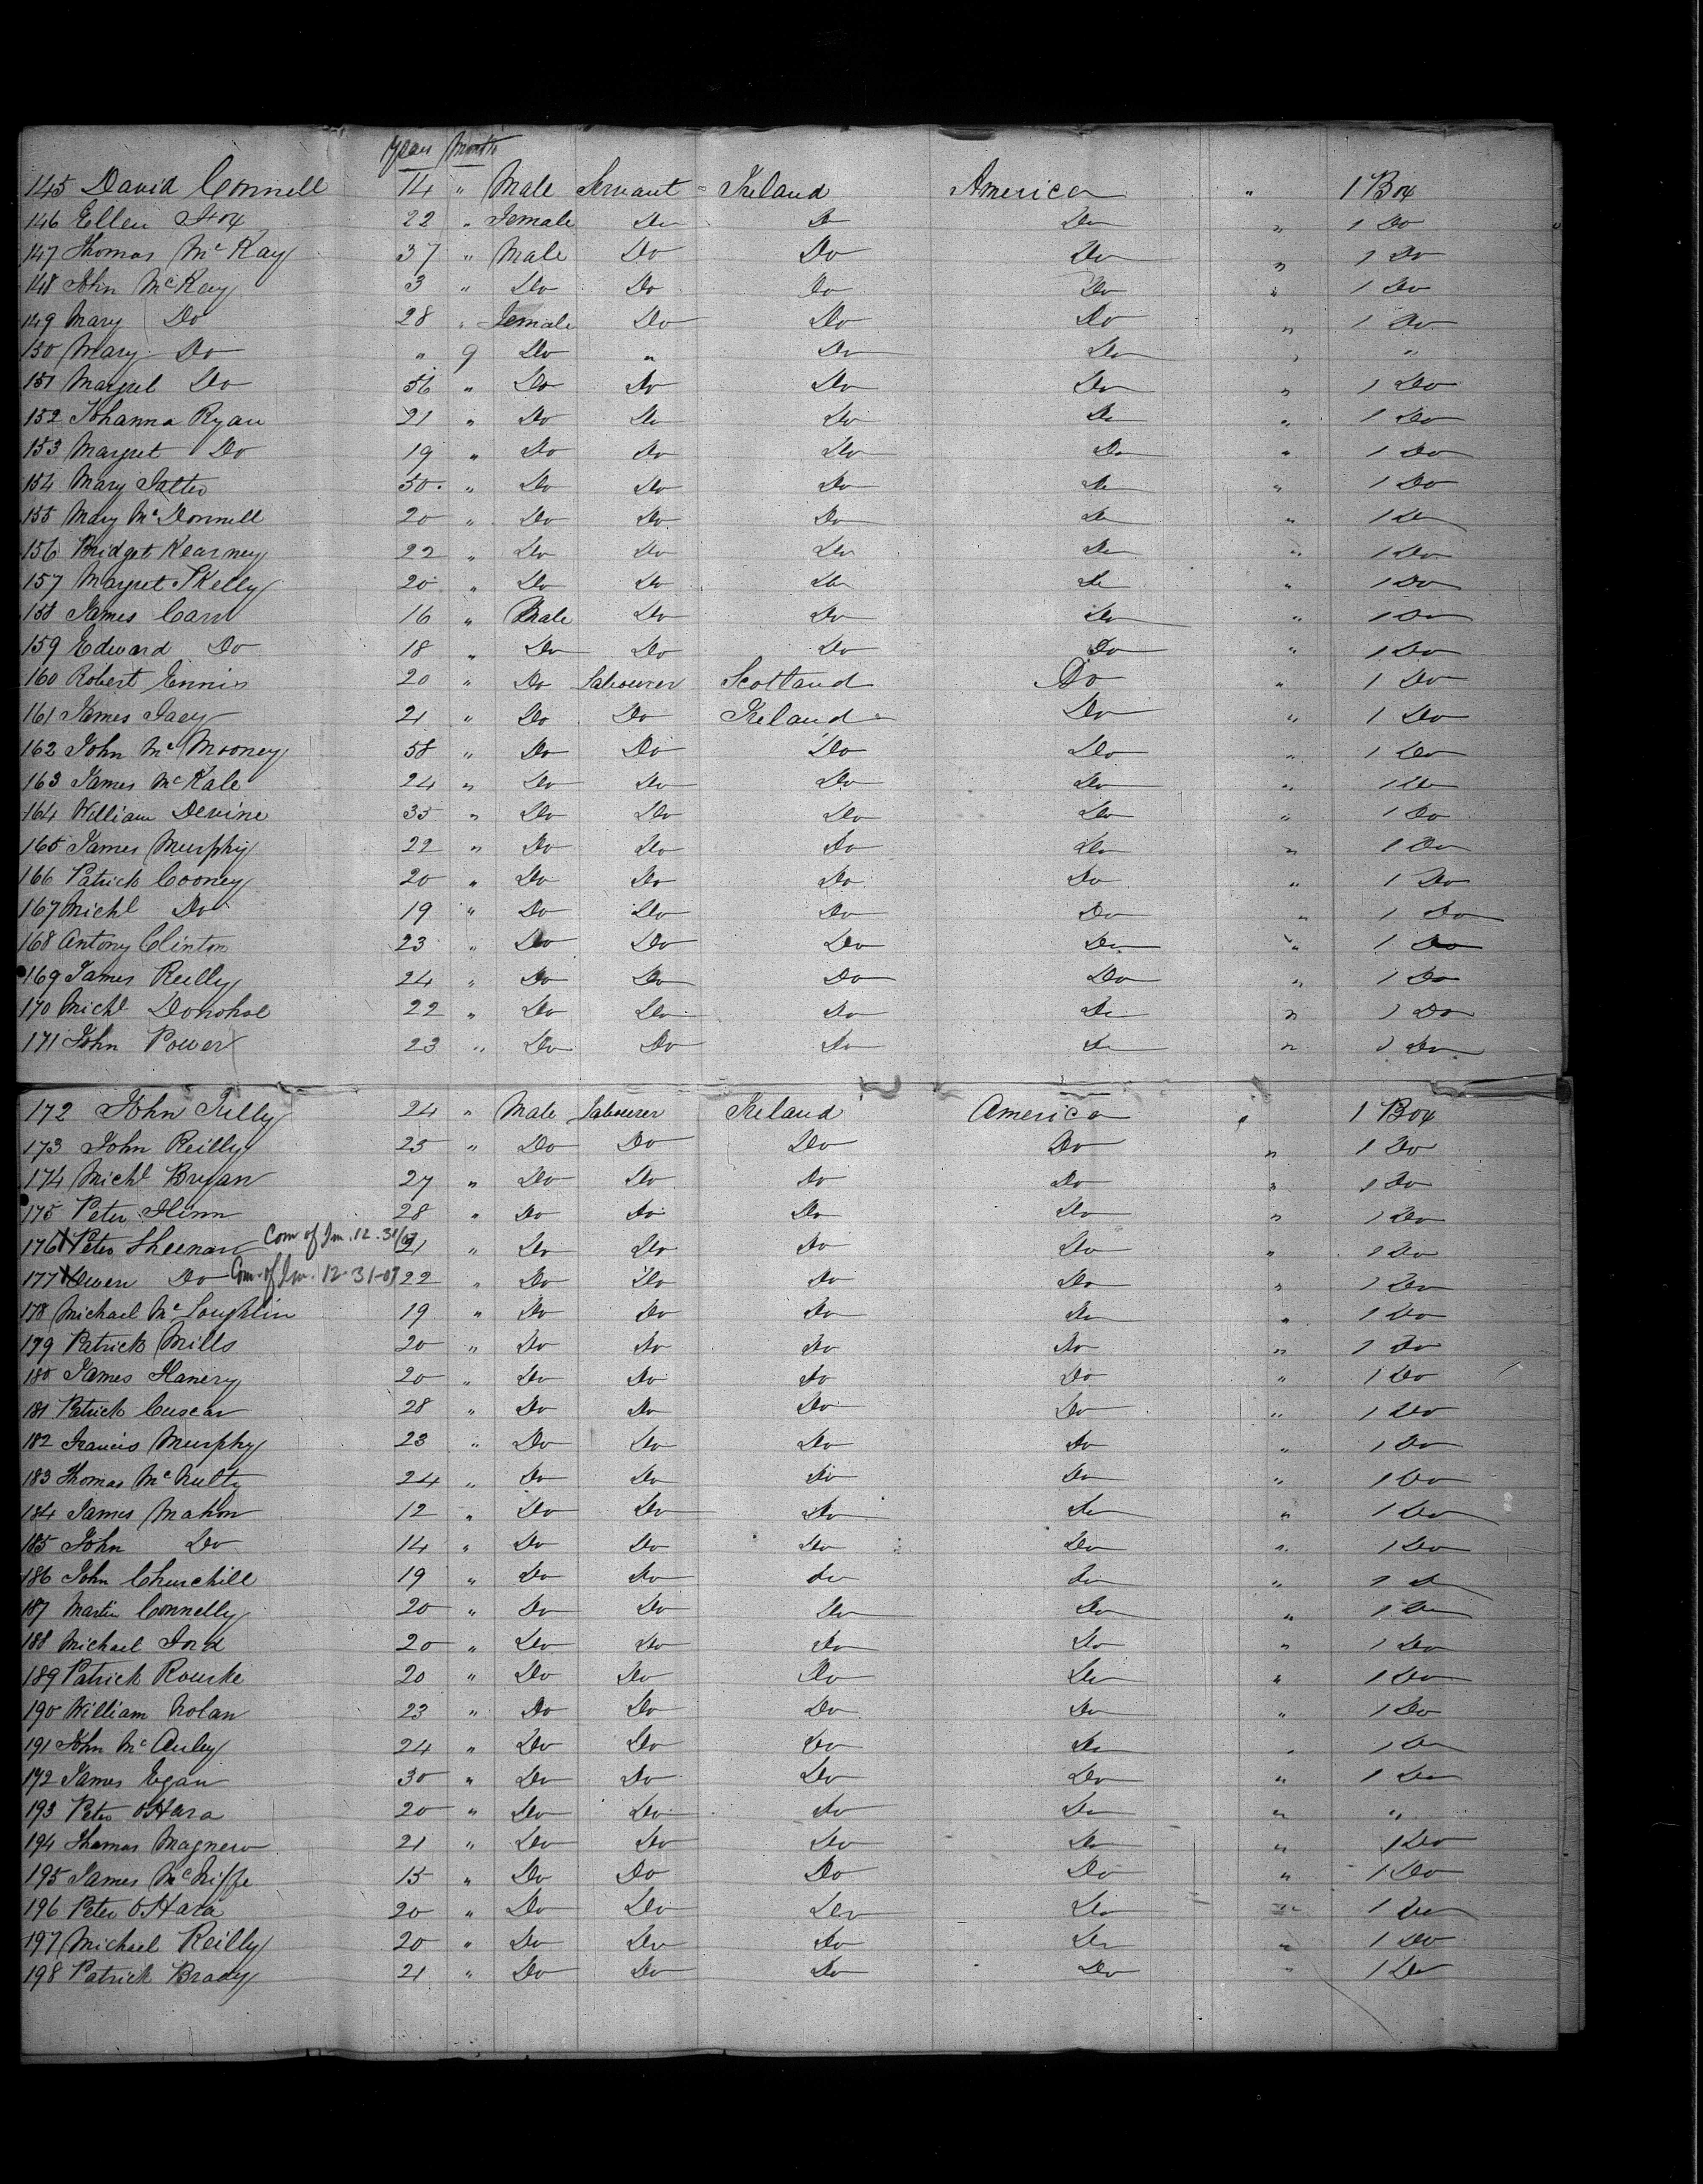 Years Month
145 David Connell 14 " Male Servant Ireland America " 1 Box
146 Ellen Fox 22 " Female Do Do Do " 1 Do
147 Thomas McKay 37 " Male Do Do Do " 1 Do
148 John McKay 3 " Do Do Do Do " 1 Do
149 Mary Do 28 " Female Do Do Do " 1 Do
150 Mary Do " 9 Do " Do Do " "
151 Margret Do 56 " Do Do Do Do " 1 Do
152 Johanna Ryan 21 " Do Do Do Do " 1 Do
153 Margret Do 19 " Do Do Do Do " 1 Do
154 Mary 50 " Do Do Do Do " 1 Do
155 Mary McDonnell 20 " Do Do Do Do " 1 Do
156 Bridget Kearney 22 " Do Do Do Do " 1 Do
157 Margret Skelly 20 " Do Do Do Do " 1 Do
158 James Carr 16 " Male Do Do Do " 1 Do
159 Edward Do 18 " Do Do Do Do " 1 Do
160 Robert Ennis 20 " Do Labourer Scotland Do " 1 Do
161 James 21 " Do Do Ireland Do " 1 Do
162 John McMooney 58 " Do Do Do Do " 1 Do
163 James McKale 24 " Do Do Do Do " 1 Do
164 William Devine 35 " Do Do Do Do " 1 Do
165 James Murphy 22 " Do Do Do Do " 1 Do
166 Patrick Cooney 20 " Do Do Do Do " 1 Do
167 Michl Do 19 " Do Do Do Do " 1 Do
168 Antony Clinton 23 " Do Do Do Do " 1 Do
169 James Reilly 24 " Do Do Do Do " 1 Do
170 Michl Donohoe 22 " Do Do Do Do " 1 Do
171 John Power 23 " Do Do Do Do " 1 Do
172 John Tully 24 " Male Labourer Ireland America " 1 Box
173 John Reilly 25 " Do Do Do Do " 1 Do
174 Michl Bryan 27 " Do Do Do Do " 1 Do
175 Peter Flinn 28 " Do Do Do Do " 1 Do
176 X Peter Sheenan Com of Im. 12.31/07 21 " Do Do Do Do " 1 Do
177 X Owen Do Com. of Im. 12-31-07 22 " Do Do Do Do " 1 Do
178 Michael McLoughlin 19 " Do Do Do Do " 1 Do
179 Patrick Mills 20 " Do Do Do Do " 1 Do
180 James Flanery 20 " Do Do Do Do " 1 Do
181 Patrick Cuscar 28 " Do Do Do Do " 1 Do
182 Francis Murphy 23 " Do Do Do Do " 1 Do
183 Thomas McNulty 24 " Do Do Do Do " 1 Do
184 James Mahon 12 " Do Do Do Do " 1 Do
185 John Do 14 " Do Do Do Do " 1 Do
186 John Churchill 19 " Do Do Do Do " 1 Do
187 Martin Connelly 20 " Do Do Do Do " 1 Do
188 Michael Ford 20 " Do Do Do Do " 1 Do
189 Patrick Rourke 20 " Do Do Do Do " 1 Do
190 William Nolan 23 " Do Do Do Do " 1 Do
191 John McAuley 24 " Do Do Do Do " 1 Do
192 James Egan 30 " Do Do Do Do " 1 Do
193 Peter OHara 20 " Do Do Do Do " "
194 Thomas Magnew 21 " Do Do Do Do " 1 Do
195 James McNiffe 15 " Do Do Do Do " 1 Do
196 Peter OHara 20 " Do Do Do Do " 1 Do
197 Michael Reilly 20 " Do Do Do Do " 1 Do
198 Patrick Brady 21 " Do Do Do Do " 1 Do